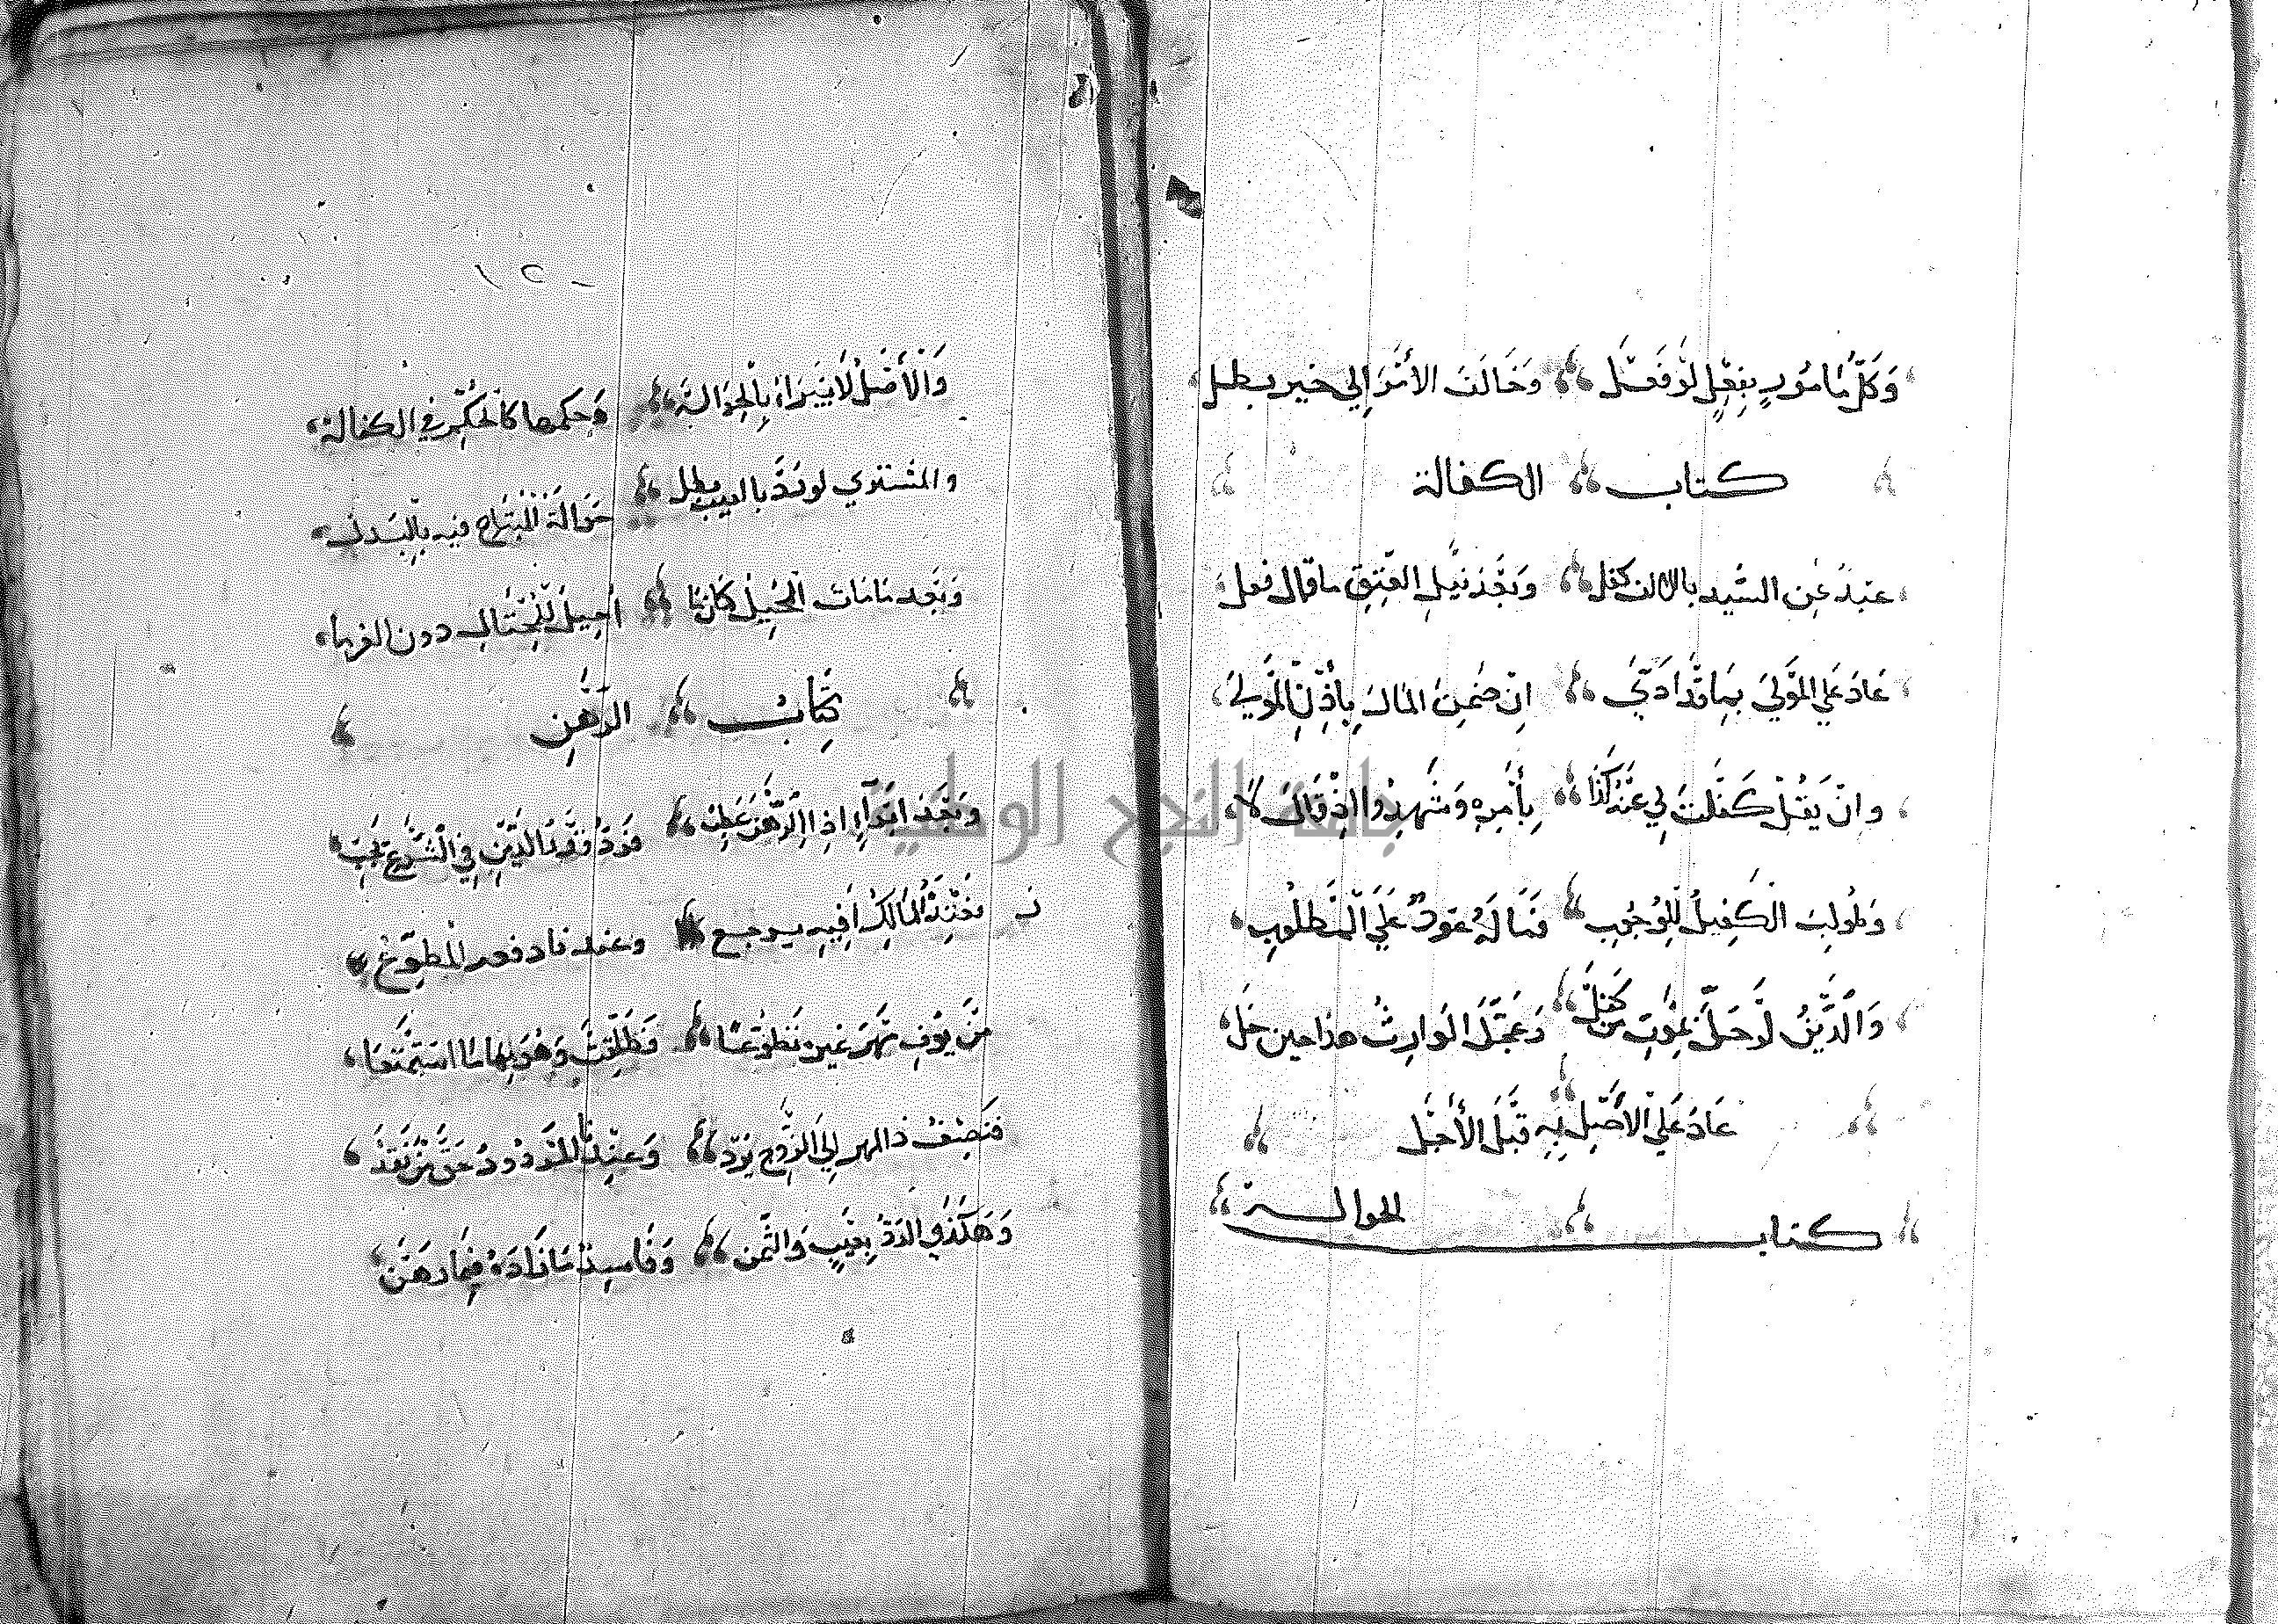 وَكُلُّ مَامُورٍ بِفِعْلٍ لَوْ فَعَلْ وَخَالَفَ الأَمْرَ إِلي خير بطل
كتاب الكفالة
عَبْدٌ عَنِ السَّيد بالاذن كفل وَبَعْدَ نَيْلِ العِتْقِ ما قال فعل
عَادَ عَلي المَوْلَي بِمَا قَدْ ادَّيَ اِنْ ضَمِنَ المَالَ بِأِذْنِ المَوْلَي
وانْ يَقُلْ كَفَلْتَ لِي عَنْهُ كَذَا بِأَمْرِهِ وَشَهِدُوا اِذْ قَالَ لَا
وَطُولِبَ الْكَفِيلُ لِلْوُجُوبِ فَمَا لَهُ عَوْدٌ عَلَيَ الْمَطْلُوبِ
وَالدَّيْنُ لَوْ حَلَّ بِمَوْتِ مَنْ كَفَلْ وَعَجَّلَ الْوَارِثُ هذا حين حَلْ
عَادَ عَلَي الأَصْلِ بِهِ قَبْلَ الأَجَلْ
كتاب الحوالة
١٢٠
وَالْأَصْلُ لَا يَبْرَاء بِالْحِوَالَةْ وَحكمها كَالْحُكْمِ فِي الكفالة
والمشتري لو رَدَّ بالعيب بطل حَوَالَةُ الْمُبْتَاعِ فيه بِالْبَدَلْ
وَبَعْد مَا مَاتَ الْمُحِيلُ كَانَ مَا أُحِيلَ لِلْمُحْتَالِ دون الغرما
كِتَابُ الرَهْنِ
وَبَعْدَ ابْرَآءٍ اذا الرَّهْنُ عَطِبْ فَرَدُّ قَدْرِ الدَّيْنِ فِي الْشَرْعِ يَجِبْ
المَالِكُ فِيهِ يرجع وعند نا دفعه المطوّع
مَنْ يُوفِ مَهْرَ غَيْرِهِ تَطَوُّعَا فَطُلِّقَتْ وَهُوَ بِهَا مَا اسْتَمْتَعَا
فَنِصْفُ ذا المهر اِلَي الزَّوْجِ يُرَدّ وَعِنْدَنَا الْمَرْدُودُ حَقُّ مَنْ نَقَدْ
وَهَكَذَي الرَّدُّ بِعَيْبٍ وَالثَّمَنْ وَفَاسِدٌ مَا زَادَهُ فِيمَا رَهَنْ
جامعة النجاح الوطنية